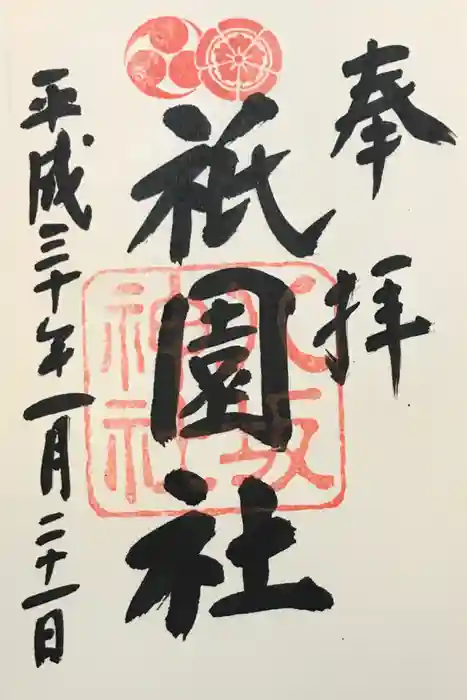 奉拝
祇園社
八坂
神社
平成三十年一月二十一日